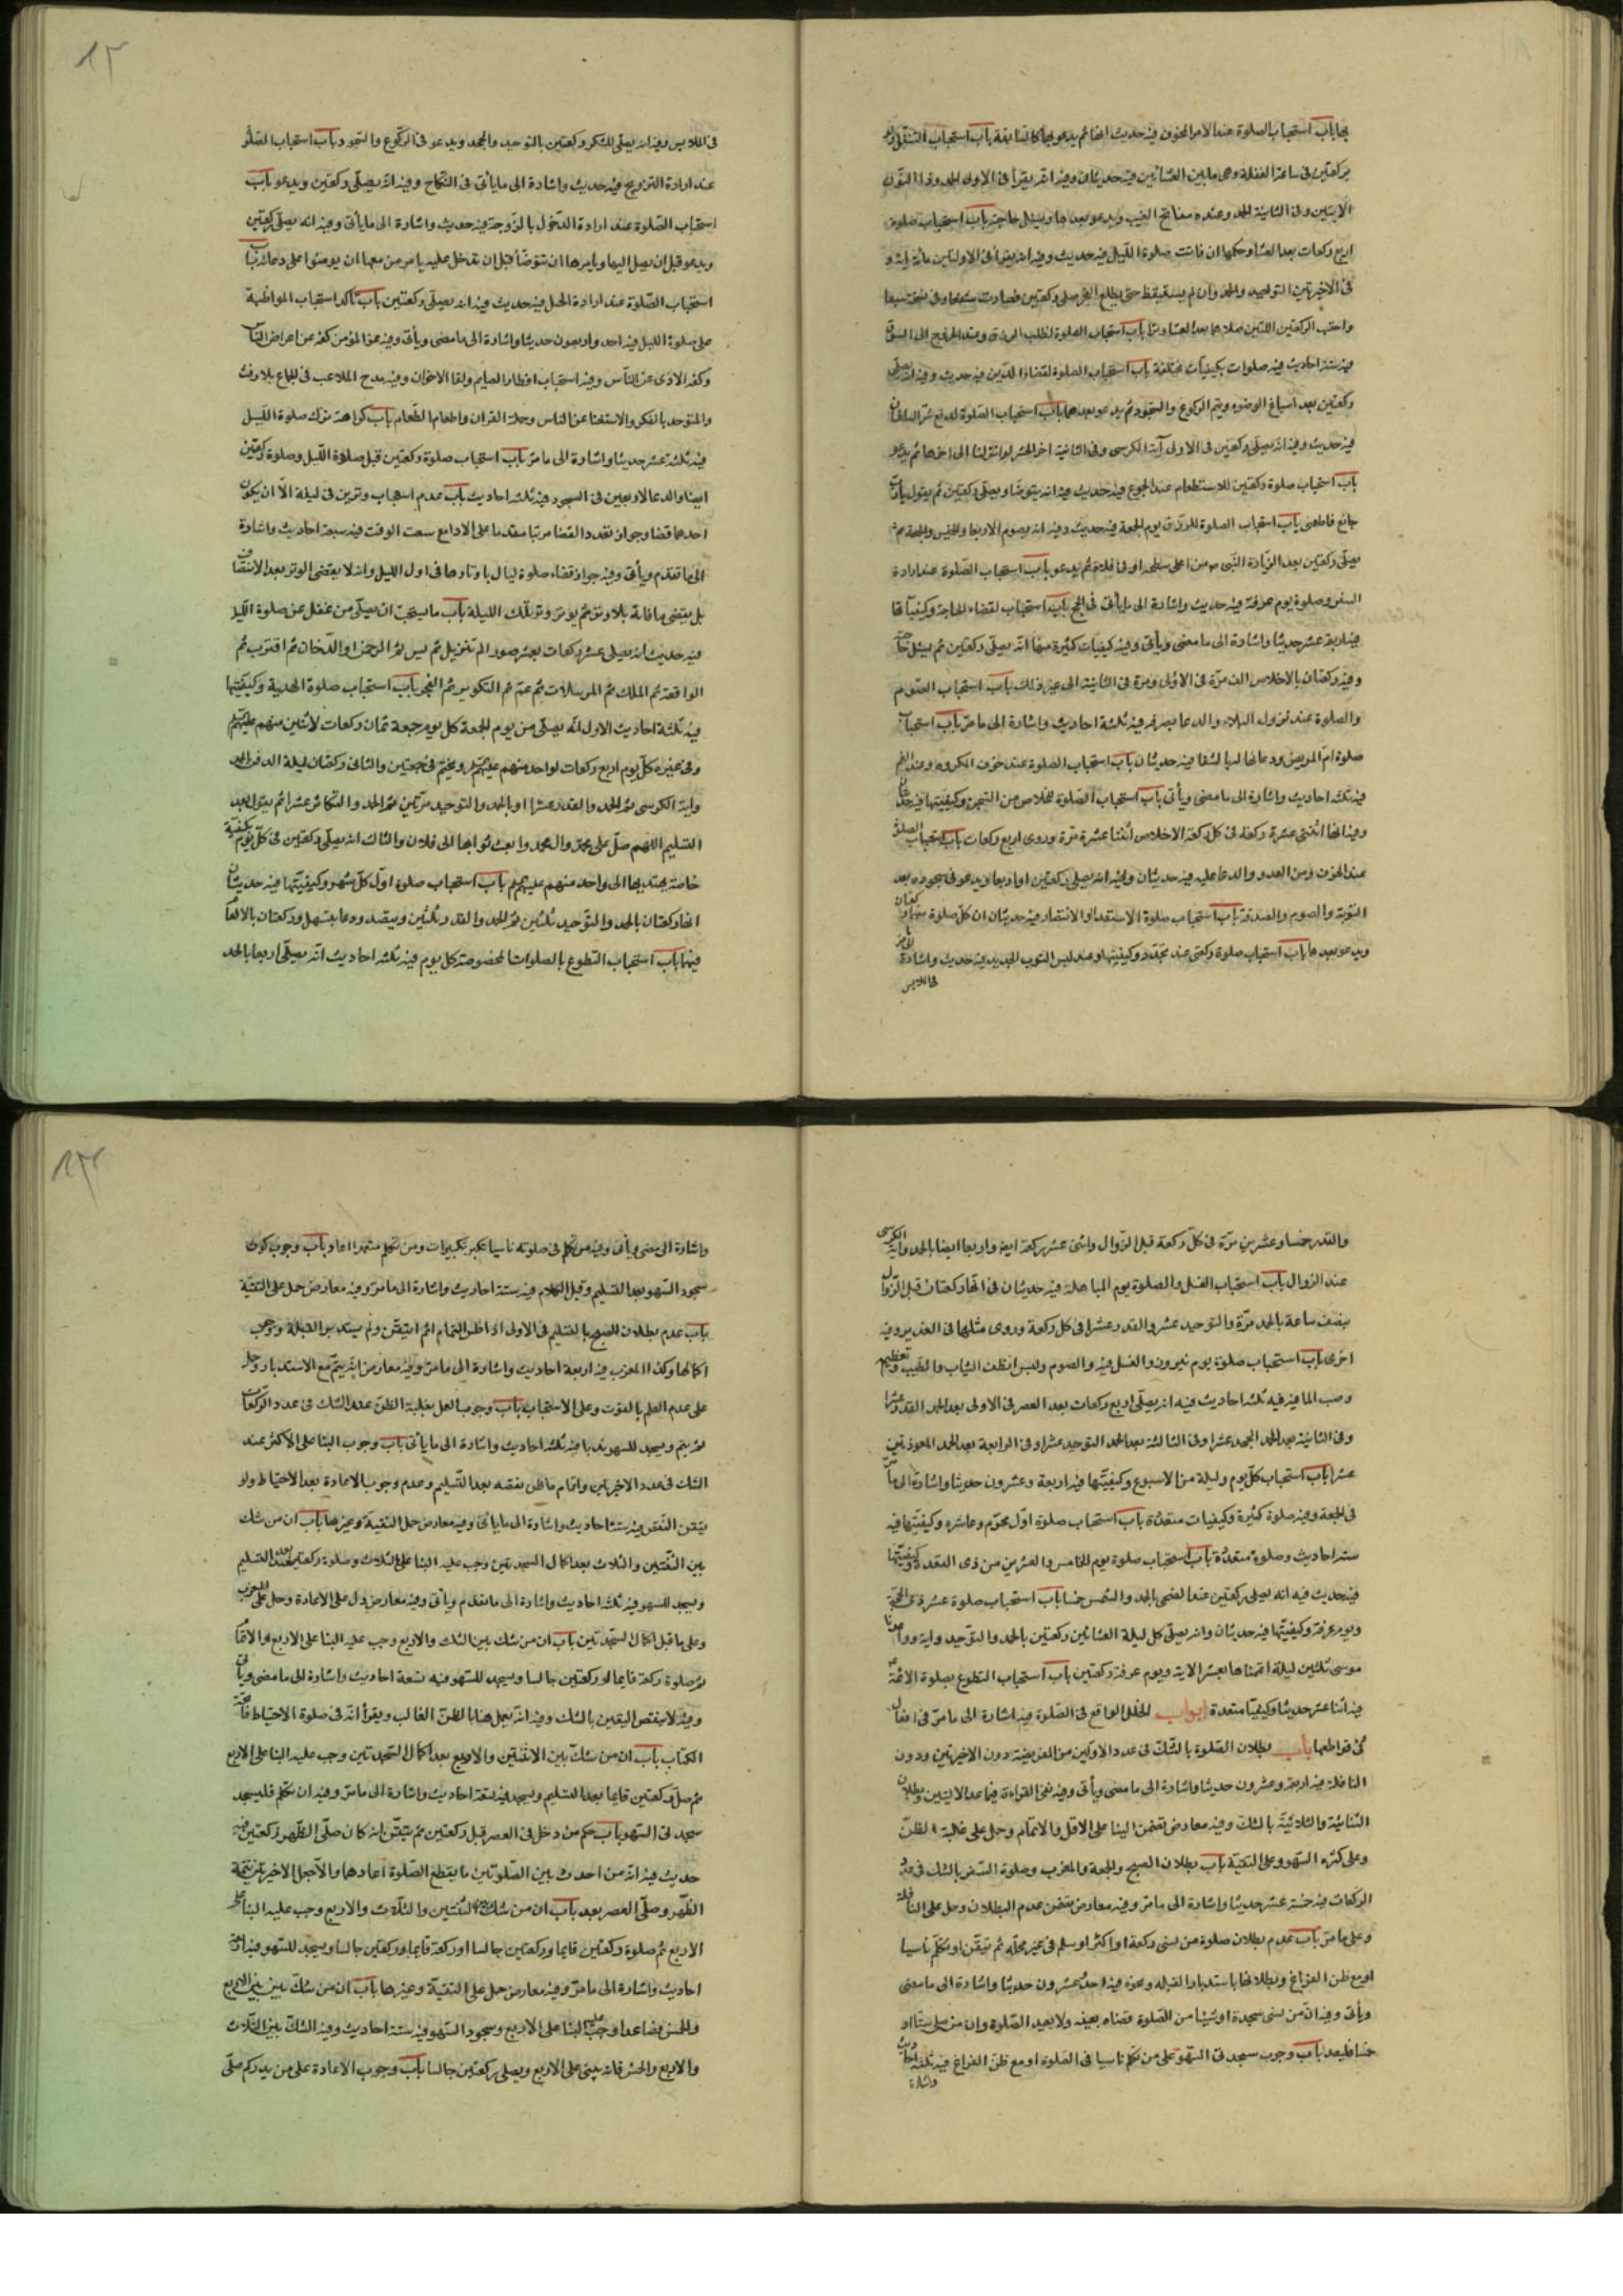 بها باب استحباب الصلوة عند الامر المخوف فيه حديث انها ثم يدعو بها كالسابقة باب استحباب التنفل ولو
بركعتين فى ساعة الغفلة وهى ما بين العشائين فيه حديثان وفيه انه يقرأ فى الاولى الحمد وذا النون
الآيتين وفى الثانية الحمد وعنده مفاتح الغيب ويدعو بعدها ويسئل حاجته باب استحباب صلوة
اربع ركعات بعد العشا وحكمها ان فاتت صلوة الليل فيه حديث وفيه انه يقرأ فى الاولتين مائة اية و
فى الاخيرتين التوحيد والحمد وان لم يستيقظ حتى يطلع الفجر صلى ركعتين فصارت شفعا وفى نسخة سبعا
واحتسب الركعتين اللتين صلاهما بعد العشا وترا باب استحباب الصلوة لطلب الرزق وعند الخروج الى السوق
فيه ستة احاديث فيه صلوات بكيفيات مختلفة باب استحباب الصلوة لقضاء الدين فيه حديث وفيه انه يصلى
ركعتين بعد اسباغ الوضوء ويتم الركوع والسجود ثم يدعو بعدها باب استحباب الصلوة لدفع شر السلطان
فيه حديث وفيه انه يصلى ركعتين فى الاولى آية الكرسى وفى الثانية اخر الحشر لو انزلنا الى اخرها ثم يدعو
باب استحباب صلوة ركعتين للاستطعام عند الجوع فيه حديث فيه انه يتوضا ويصلى ركعتين ثم يقول يا رب
جائع فاطعمنى باب استحباب الصلوة للرزق يوم الجمعة فيه حديث وفيه انه يصوم الاربعا والخميس والجمعة ثم
يصلى ركعتين بعد الزيادة النبى ص من اعلى سطحه او فى فلاة ثم يدعو باب استحباب الصلوة عند ارادة
السفر وصلوة يوم عرفة فيه حديث واشارة الى ما يأتى فى الحج باب استحباب لقضاء الحاجة وكيفياتها
فيه اربعة عشر حديثا واشارة الى ما مضى ويأتى وفيه كيفيات كثيرة منها انه يصلى ركعتين ثم يسئل حاجته
وفيه ركعتان بالاخلاص الف مرة فى الاولى ومرة فى الثانية الى غير ذلك باب استحباب الصوم
والصلوة عند نزول البلاء والدعا بصرفه فيه ثلثة احاديث واشارة الى ما مر باب استحباب
صلوة ام المريض ودعائها له بالشفا فيه حديثان باب استحباب الصلوة عند خوف المكروه وعند الغم
فيه ثلثه احاديث واشارة الى ما مضى ويأتى باب استحباب الصلوة للخلاص من السجن وكيفيتها فيه حديثان
وفيه انها اثنتى عشرة ركعة فى كل ركعة الاخلاص اثنتا عشرة مرة وروى اربع ركعات باب استحباب الصلوة
عند الخوف ومن العدو والدعا عليه فيه حديثان وفيه انه يصلى ركعتين او اربعا ويدعو فى سجوده بعد
التوبة والصوم والصدقة باب استحباب صلوة الاستعداء والانتصار فيه حديثان ان كل صلوة منها ركعتان
ويدعو بعدها باب استحباب صلوة ركعتى عند تجدد وكيفيتها وعند لبس الثوب الجديد فيه حديث واشارة الى ما مر
فى الملابس
١٢
فى الملابس وفيه انه يصلى للشكر ركعتين بالتوحيد والجحد ويدعو فى الركوع والسجود باب استحباب الصلو
عند ارادة التزويج فيه حديث واشارة الى ما يأتى فى النكاح وفيه انه يصلى ركعتين ويدعو باب
استحباب الصلوة عند ارادة الدخول بالزوجة فيه حديث واشارة الى ما يأتى وفيه انه يصلى ركعتين
ويدعو قبل ان يصل اليها ويامرها ان تتوضأ قبل ان تدخل عليه يامر من معها ان يومنوا على دعائه باب
استحباب الصلوة عند ارادة الحبل فيه حديث وفيه انه يصلى ركعتين باب تاكد استحباب المواظبة
على صلوة الليل فيه احد واربعون حديثا واشارة الى ما مضى ويأتى وفيه عز المؤمن كفه عن اعراض الناس
وكفه الاذى عن الناس وفيه استحباب افطار الصايم ولقا الاخوان وفيه مدح الملاعب فى الجماع بلا رفث
والمتوحد بالفكر والاستغنا عن الناس وحملة القران واطعام الطعام باب كراهة ترك صلوة الليل
فيه ثلثة عشر حديثا واشارة الى ما مر باب استحباب صلوة ركعتين قبل صلوة الليل وصلوة ركعتين
ايضا والدعا لاربعين فى السجود فيه ثلثه احاديث باب عدم استحباب وترين فى ليلة الا ان يكون
احدهما قضا وجواز تعدد القضا مرتبا مقدما على الادا مع سعت الوقت فيه سبعة احاديث واشارة
الى ما تقدم ويأتى وفيه جواز قضاء صلوة ليال باوتارها فى اول الليل وانه لا يقضى الوتر بعد الانتصاف
بل يقضى ما فاته بلا وتر ثم يوتر وتر تلك الليلة باب ما يستحب ان يصلى من غفل عن صلوة الليل
فيه حديث انه يصلى عشر ركعات بعشر صور الم تنزيل ثم يس ثم الرحمن او الدخان ثم اقترب ثم
الواقعة ثم الملك ثم المرسلات ثم عم ثم التكوير ثم الفجر باب استحباب صلوة الهدية وكيفيتها
فيه ثلثة احاديث الاول انه يصلى من يوم الجمعة كل يوم جمعة ثمان ركعات لاثنين منهم عليهم
وفى غيره كل يوم اربع ركعات لواحد منهم عليهم ويختم فى جمعتين والثانى ركعتان ليلة الدفن الحمد
واية الكرسى ثم الحمد والقدر عشرا او بالحمد والتوحيد مرتين ثم الحمد والتكاثر عشرا ثم يقول بعد
التسليم اللهم صل على محمد وال محمد وابعث ثوابها الى فلان والثالث انه يصلى ركعتين فى كل يوم بكيفية
خاصة يهديها الى واحد منهم عليهم باب استحباب صلوة اول كل شهر وكيفيتها فيه حديثان
انها ركعتان بالحمد والتوحيد ثلثين ثم الحمد والقدر ثلثين ويتصدق ودعا يتسهل وركعتان بالانعام
فيهما باب استحباب التطوع بالصلوات المخصوصة كل يوم فيه ثلثه احاديث انه يصلى اربعا بالحمد
والقدر خمسا وعشرين مرة فى كل ركعة قبل الزوال واثنى عشر ركعة ايضا واربعا ايضا بالحمد واية الكرسى
عند الزوال باب استحباب الغسل والصلوة يوم المباهلة فيه حديثان فى انها ركعتان قبل الزوال
بنصف ساعة بالحمد مرة والتوحيد عشر والقدر عشرا فى كل ركعة وروى مثلها فى الغدير وفيه
اخرى باب استحباب صلوة يوم نيروز والغسل فيه والصوم ولبس انظف الثياب والطيب وتعظيمه
وصب الما فيه فيه ثلثه احاديث فيه انه يصلى اربع ركعات بعد العصر فى الاولى بعد الحمد القدر عشرا
وفى الثانية بعد الحمد الجحد عشرا وفى الثالثة بعد الحمد التوحيد عشرا وفى الرابعة بعد الحمد المعوذتين
عشرا باب استحباب كل يوم وليلة من الاسبوع وكيفيتها فيه اربعة وعشرون حديثا واشارة الى ما مر
فى الجمعة وفيه صلوة كثيرة وكيفيات متعددة باب استحباب صلوة اول محرم وعاشره وكيفيتها فيه
ستة احاديث وصلوة متعددة باب استحباب صلوة يوم الخامس والعشرين من ذى القعدة وكيفيتها
فيه حديث فيه انه يصلى ركعتين عند الضحى بالحمد والشمس خمسا باب استحباب صلوة عشر ذى الحجة
ويوم عرفة وكيفيتها فيه حديثان وانه يصلى كل ليلة العشائين ركعتين بالحمد والتوحيد واية وواعدنا
موسى ثلثين ليلة اتممناها بعشر الاية ويوم عرفة ركعتين باب استحباب التطوع بصلوة الائمة ع
فيه اثنا عشر حديثا وكيفيتا متعددة ابواب الخلل الواقع فى الصلوة فيه اشارة الى ما مر فى افعال
فى قواطعها باب بطلان الصلوة بالشك فى عدد الاولين من الفريضة دون الاخيرتين ودون
النافلة فيه اربعة وعشرون حديثا واشارة الى ما مضى ويأتى وفيه نفى القراءة فيما عدا الاليين وبطلان
الثنائية والثلاثية بالشك وفيه معارض تضمن البنا على الاقل والاتمام وحمل على غلبة الظن
وعلى كثرة السهو وعلى التقية باب بطلان الصبح والجمعة والمغرب وصلوة السفر بالشك فى عدد
الركعات فيه خمسة عشر حديثا واشارة الى ما مر وفيه معارض تضمن عدم البطلان وحمل على النافلة
وعلى ما مر باب عدم بطلان صلوة من نسى ركعة او اكثر او سلم فى غير محله ثم تيقن او تكلم ناسيا
او مع ظن الفراغ وبطلانها باستدبار القبله ونحوه فيه احد عشرون حديثا واشارة الى ما مضى
ويأتى وفيه ان من نسى سجدة او شيئا من الصلوة قضاه بعينه ولا يعيد الصلوة وان من صلى ستا او
خمسا فليعد باب وجوب سجدتى السهو على من تكلم ناسيا فى الصلوة او مع ظن الفراغ فيه ثلثة احاديث
واشارة
١٣
واشارة الى مضى ويأتى وفيه من تكلم فى صلوته ناسيا يكبر تكبيرات ومن تكلم متعمدا اعاد باب وجوب كون
سجود السهو بعد التسليم وقبل الكلام فيه ستة احاديث واشارة الى ما مر وفيه معارض حمل على التقية
باب عدم بطلان الصبح بالتسليم فى الاولى اذا ظن التمام ثم ايتيقن ولم يستدبر القبلة ووجوب
اكمالها وكذا المغرب فيه اربعة احاديث واشارة الى ما مر وفيه معارض انه يتم مع الاستدبار وحمل
على عدم العلم بالفوت وعلى الاستحباب باب وجوب العمل بغلبة الظن عند الشك فى عدد الركعات
ثم يتم ويسجد للسهو ندبا فيه ثلثه احاديث واشارة الى ما يأتى باب وجوب البنا على الاكثر عند
الشك فى عدد الاخيرتين واتمام ما ظن نقصه بعد التسليم وعدم وجوب الاعادة بعد الاحتياط ولو
تيقن النقص فيه ستة احاديث واشارة الى ما ياتى وفيه معارض حمل التقية وغيرها باب ان من شك
بين الثنتين والثلاث بعد اكمال السجدتين وجب عليه البنا على الثلاث وصلوة ركعة بعد التسليم
ويسجد للسهو فيه ثلثه احاديث واشارة الى ما تقدم ويأتى وفيه معارض دل على الاعادة وحمل على المغرب
وعلى ما قبل اكمال السجدتين باب ان من شك بين الثلث والاربع وجب عليه البنا على الاربع والاتمام
ثم صلوة ركعة قايما او ركعتين جالسا ويسجد للسهو فيه تسعة احاديث واشارة الى ما مضى ويأتى
وفيه لا ينقض اليقين بالشك وفيه انه يعمل هنا بالظن الغالب ويقرأ انه فى صلوة الاحتياط فاتحة
الكتاب باب ان من شك بين الاثنتين والاربع بعد اكمال السجدتين وجب عليه البنا على الاربع
ثم صلى ركعتين قايما بعد التسليم ويسجد فيه تسعة احاديث واشارة الى ما مر وفيه ان تكلم فليسجد
سجدتى السهو باب حكم من دخل فى العصر قبل ركعتين ثم يتيقن انه كان صلى الظهر ركعتين فيه
حديث فيه انه من احدث بين الصلوتين ما يقطع الصلوة اعادهما والا جعل الاخيرتين تتمة
الظهر وصلى العصر بعد باب ان من شك بين الثنتين والثلاث والاربع وجب عليه البنا على
الاربع ثم صلوة ركعتين قايما وركعتين جالسا او ركعة قايما وركعتين جالسا ويسجد للسهو فيه اربعة
احاديث واشارة الى ما مر وفيه معارض حمل على التقية وغيرها باب ان من شك بين بين الاربع
والخمس فصاعدا وجب عليه البنا على الاربع وسجود السهو فيه ستة احاديث وفيه الشك بين الثلاث
والاربع والخمس فانه يبنى على الاربع ويصلى ركعتين جالسا باب وجوب الاعادة على من يدركم صلى